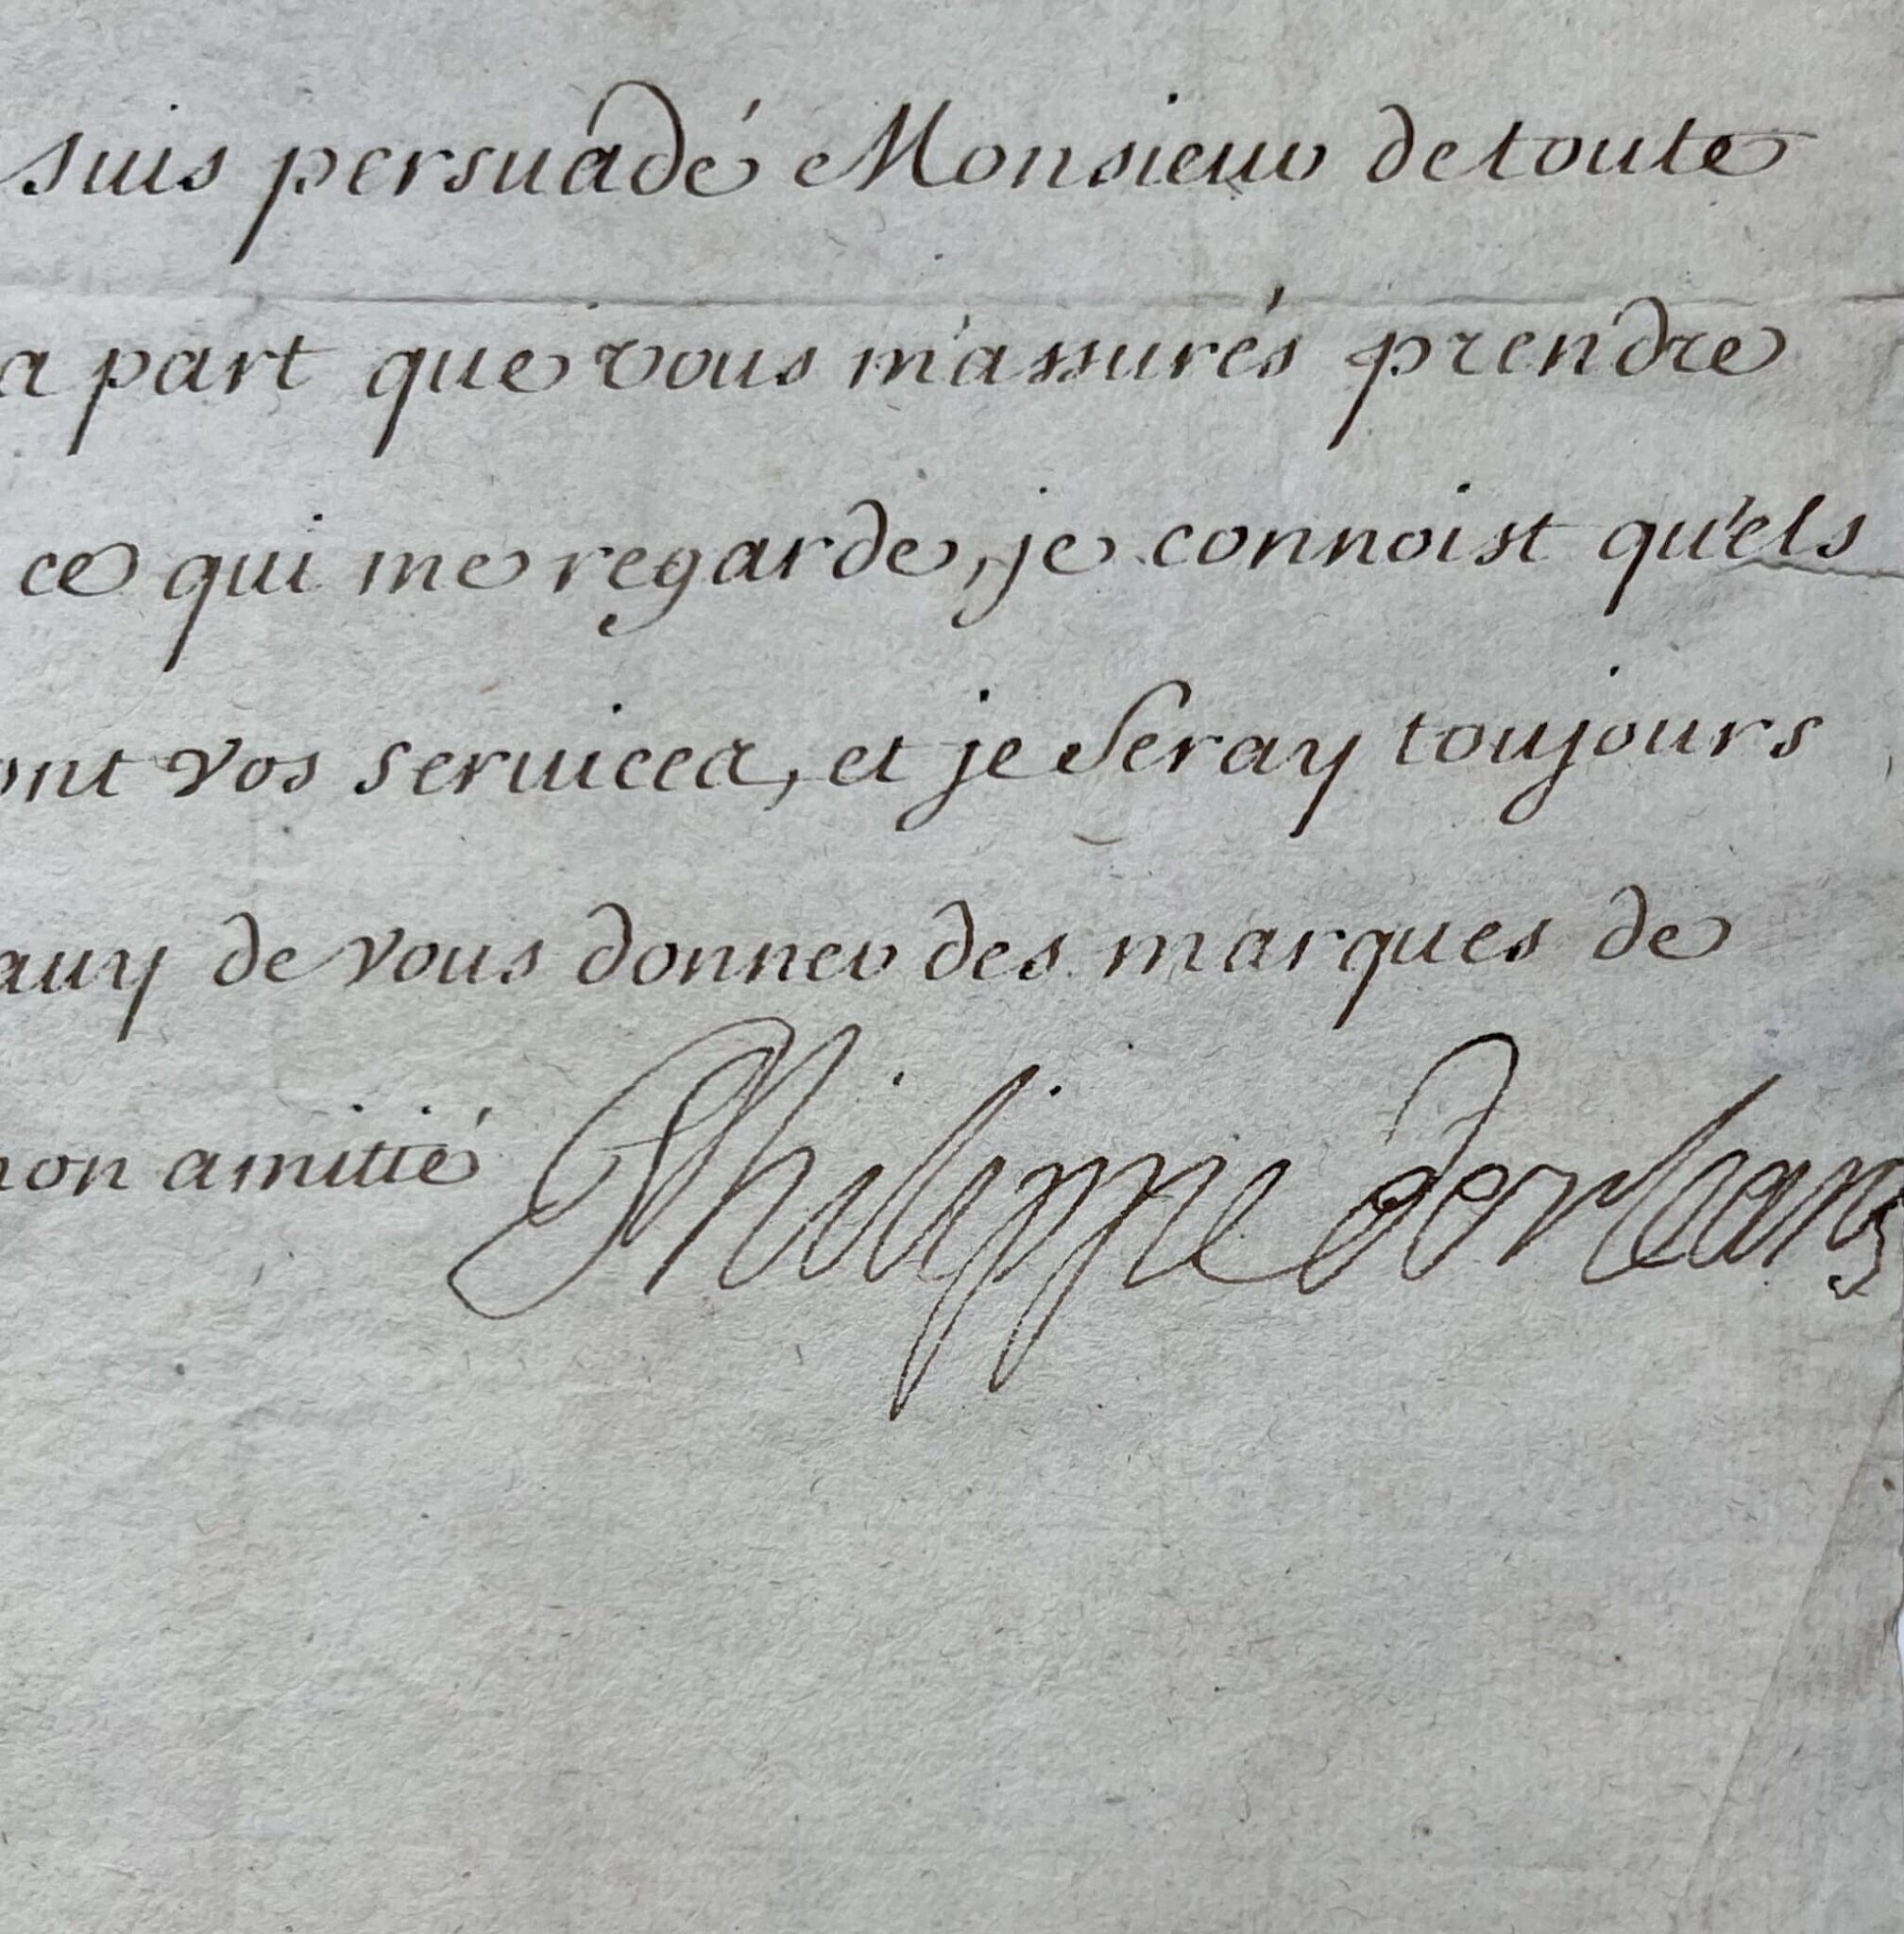 suis persuadé Monsieur de toute
a part que vous m'assurés prendre
ce qui me regarde, je connoist qu'els
ont vos seruices, et je Seray toujours
auy de vous donner des marques de
non amitié Philippe dorleans